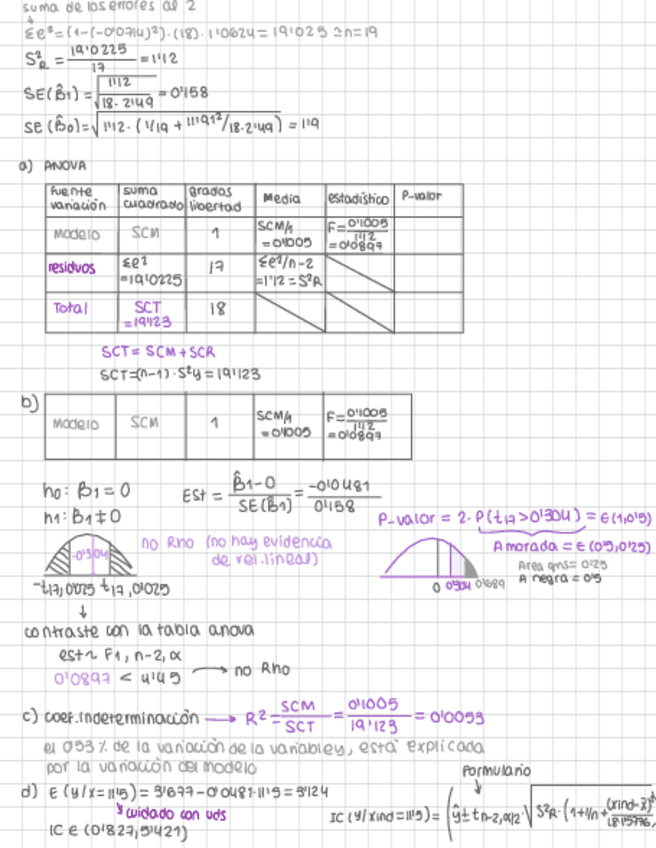 suma de los errores al 2
Σe²=(1-(-0'0714)²)·(18)·1'0624=19'025≃n=19
S²R = 19'0225/17 = 1'12
SE(β̂1)=√1'12/18·2'49 = 0'158
SE(β̂0)=√1'12·(1/19 + 11'19²/18·2'49) = 1'9
a) ANOVA
fuente variación | suma cuadrado | grados libertad | Media | estadístico | P-valor
Modelo | SCM | 1 | SCM/1 =0'1005 | F=0'1005/1'12 =0'0897
residuos | Σe² =19'0225 | 17 | Σe²/n-2 =1'12=S²R
Total | SCT =19'123 | 18
SCT= SCM+SCR
SCT=(n-1)·S²y=19'123
b)
Modelo | SCM | 1 | SCM/1 =0'1005 | F=0'1005/1'12 =0'0897
h0: β1=0
h1: β1≠0
Est = β̂1-0/SE(β̂1) = -0'0481/0'158
P-valor = 2·P(t17>0'304) = ∈(1,0'5)
-0'304
no Rho (no hay evidencia
de rel.lineal)
Amorada = ∈(0'5,0'25)
Area gris= 0'25
A negra = 0'5
0 0'304 0'689
-t17,0'025 t17,0'025
↓
contraste con la tabla anova
est~ F1, n-2, α
0'0897 < 4'45 → no Rho
c) coef.indeterminación → R²=SCM/SCT=0'1005/19'123=0'0053
el 0'53% de la variación de la variable y, está explicada
por la variación del modelo
formulario
d) E (y/x=11'5) = 3'677-0'0481·11'5=3'124
cuidado con uds
IC (y/xind=11'5)=(ŷ± tn-2,α/2·√S²R·(1+1/n+(xind-x̄)²/
IC ∈ (0'827,5'421)